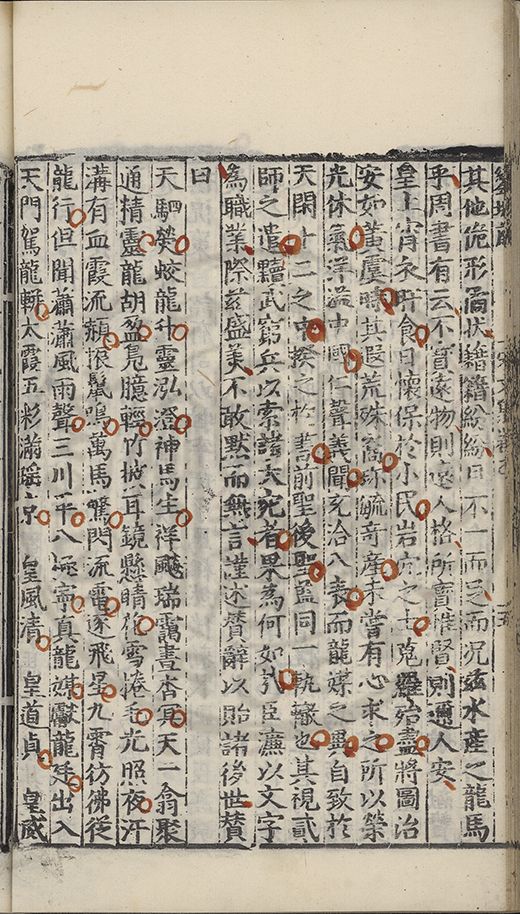 其他佹形僪狀籍籍紛紛日不一而足而況茲水產之龍馬
乎周書有云不寶遠物則遠人格所寶惟賢則邇人安
皇上宵衣旰食日懷保於小民岩穴之士蒐羅殆盡將圖治
安如黃虞時其假荒殊裔珠毓奇產未嘗有心求之所以榮
光休氣洋溢中國仁聲義聞充洽八表而龍媒之異自致於
天閑十二之中揆之於書前聖後聖蓋同一軌轍也其視貳
師之遣黷武窮兵以索諸大宛者果為何如哉臣濂以文字
為職業際茲盛美不敢默而無言謹述贊辭以貽諸後世贊
曰
天駟熒蛟龍升靈泓澄神馬生祥飈瑞靄晝杳冥天一翕聚
通精靈龍胡盈鳧臆輕竹披耳鏡懸睛花雪捲毛光照夜汗
溝有血霞流頳振鬣鳴萬馬驚門流電逐飛星九霄彷彿從
龍行但聞蕭蕭風雨聲三川平八極寧真龍媒獻龍廷出入
天門駕龍輧太霞五彩滿瑤京 皇風清 皇道貞 皇威